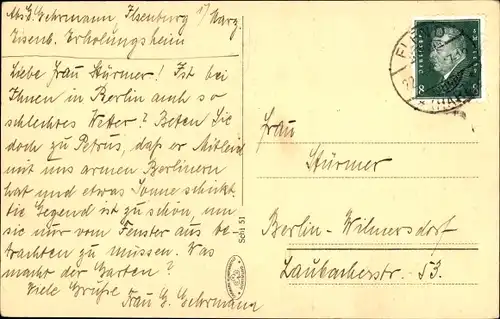 Abs. G. Gehrmann, Ilsenburg i/Harz.
Eisenb. Erholungsheim
Liebe Frau Stürmer! Ist bei
Ihnen in Berlin auch so
schlechtes Wetter? Beten Sie
doch zu Petrus, daß er Mitleid
mit uns armen Berlinern
hat und etwas Sonne schickt.
Die Gegend ist zu schön, um
sie nur vom Fenster aus be-
trachten zu müssen. Was
macht der Garten?
Viele Grüße
Frau G. Gehrmann
Schl 51
8
Frau
Stürmer
Berlin-Wilmersdorf
Laubacherstr. 53.